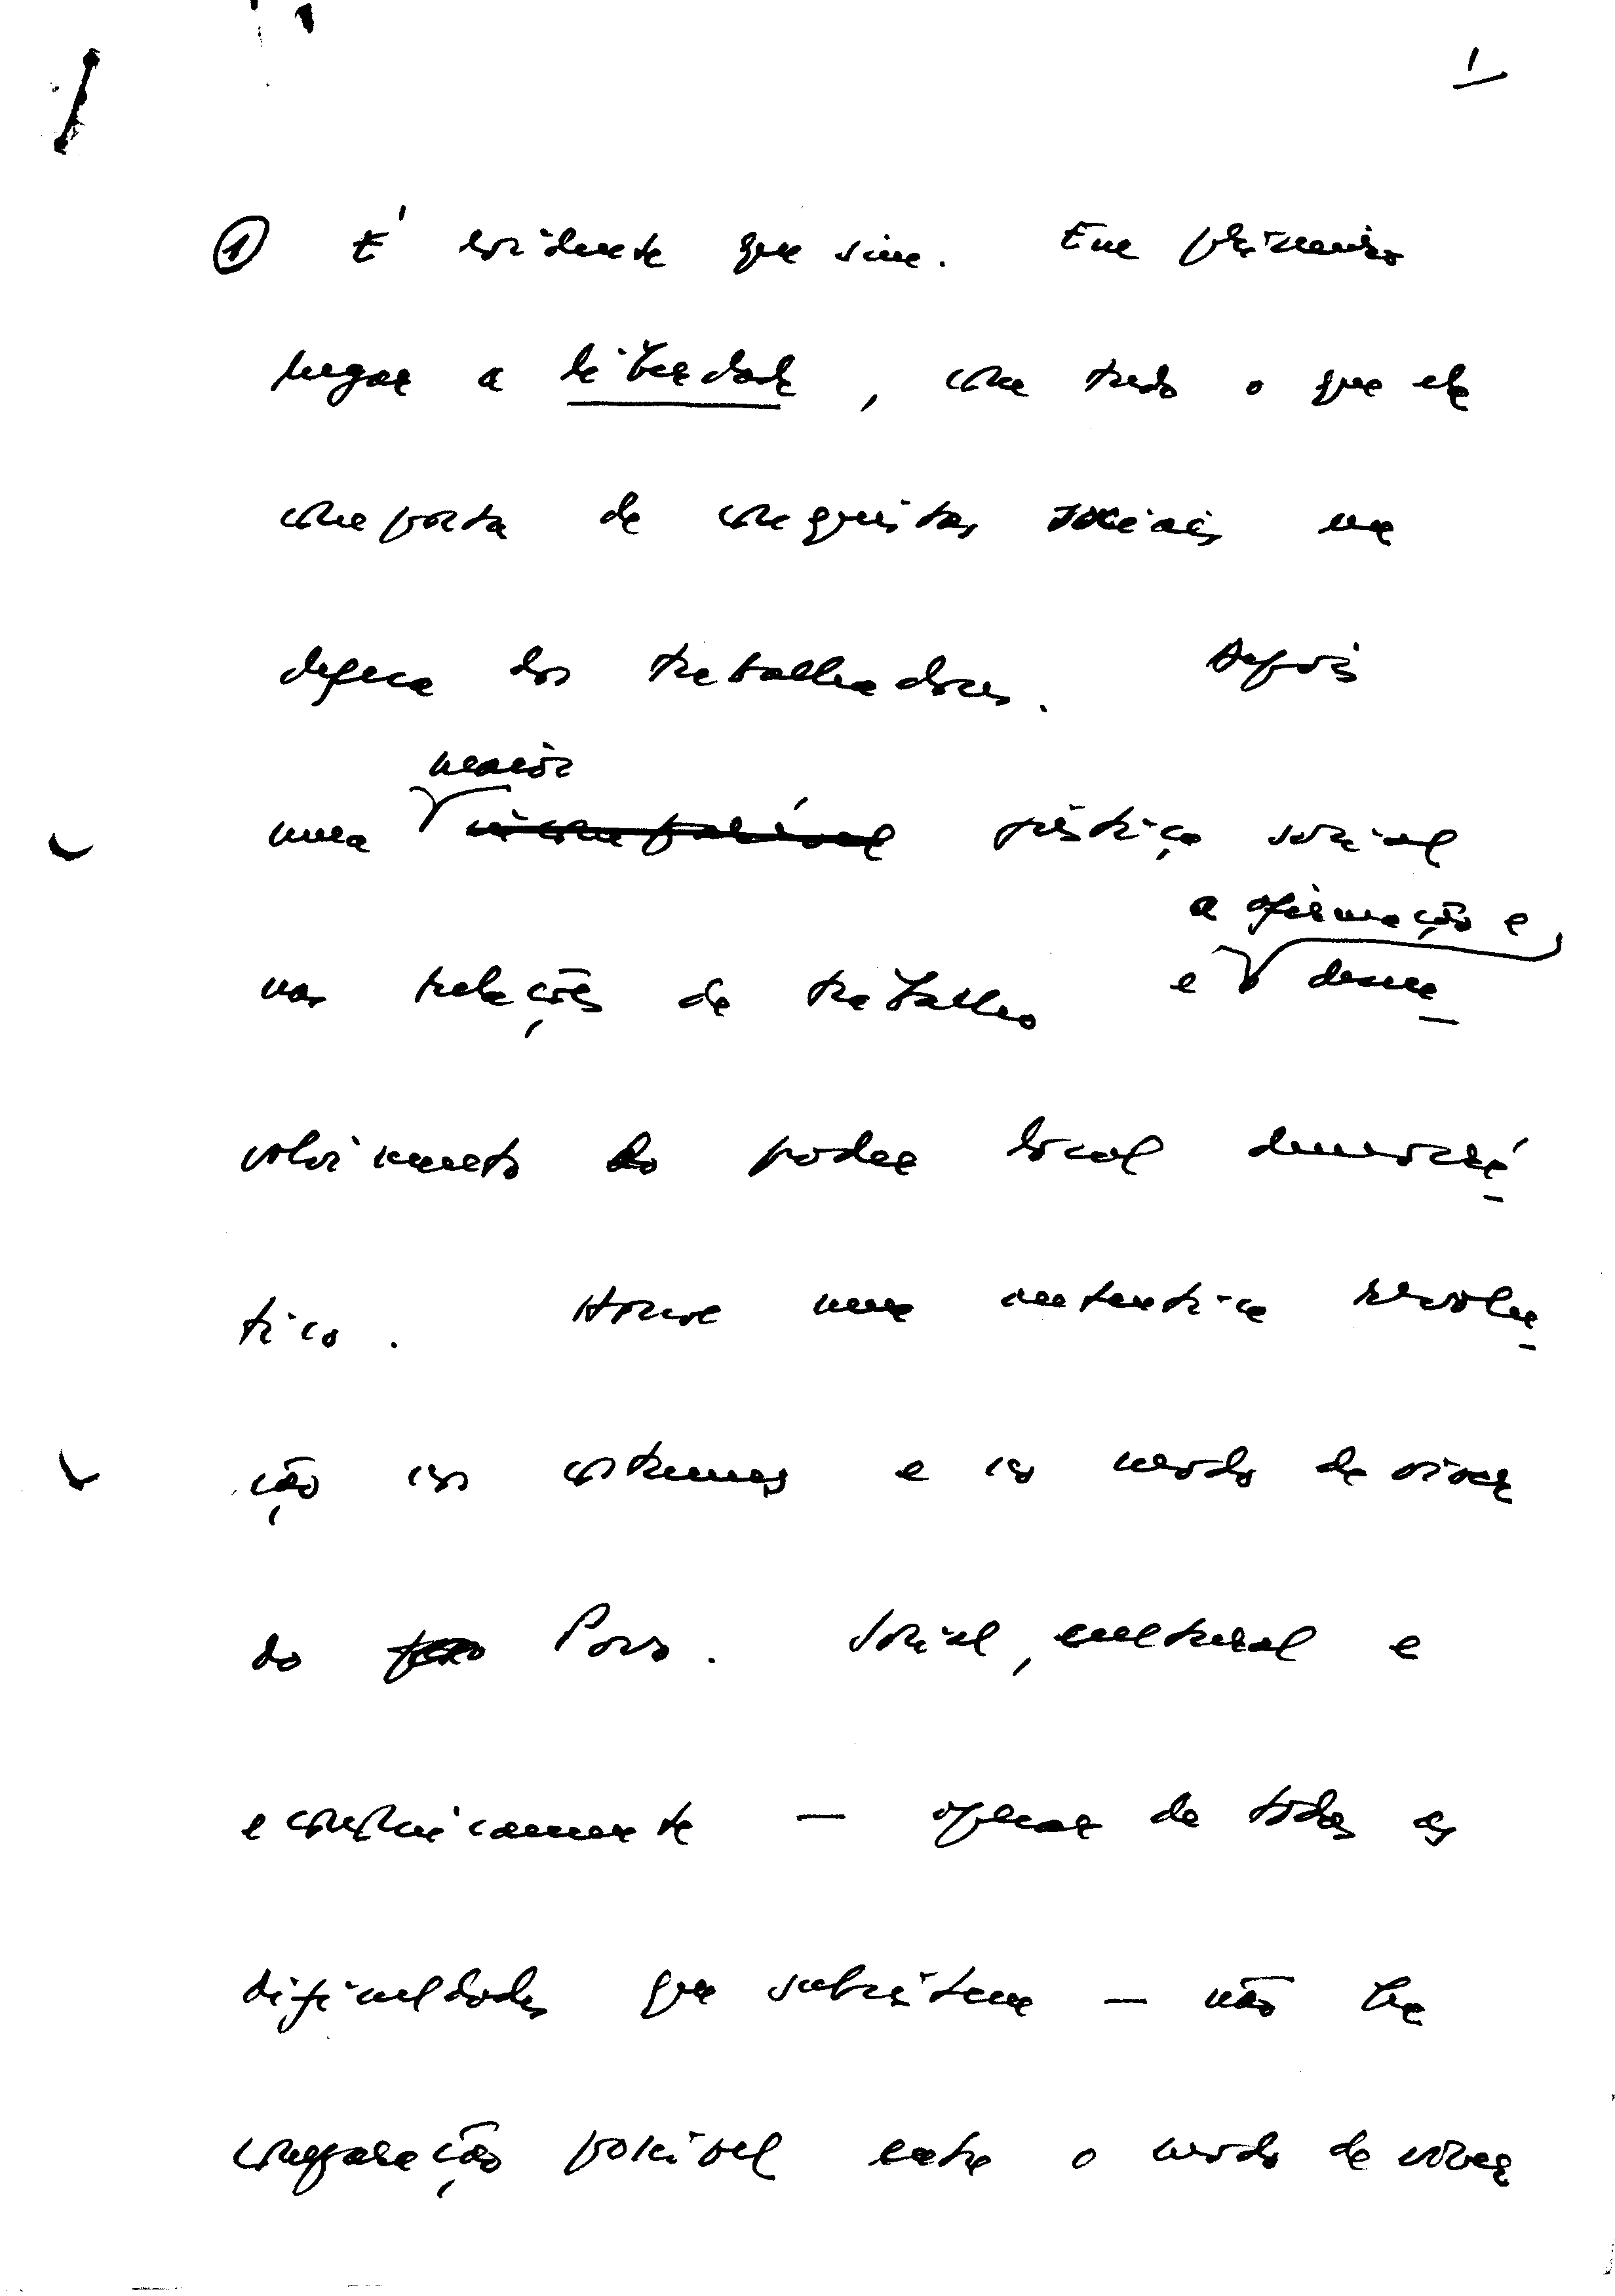 1
① É evidente que sim. Em primeiro
lugar a liberdade, com tudo o que ela
comporta de conquistas sociais na
defesa dos trabalhadores. Depois
maior
uma incomparável justiça social
a afirmação e
nas relações de trabalho e desen-
volvimento do poder local democrá-
tico. Houve uma autentica revolu-
ção nos costumes e no modo de viver
do Povo. Social, cultural e
economicamente — apesar de todas as
dificuldades que subsistem — não há
comparação possível entre o modo de viver